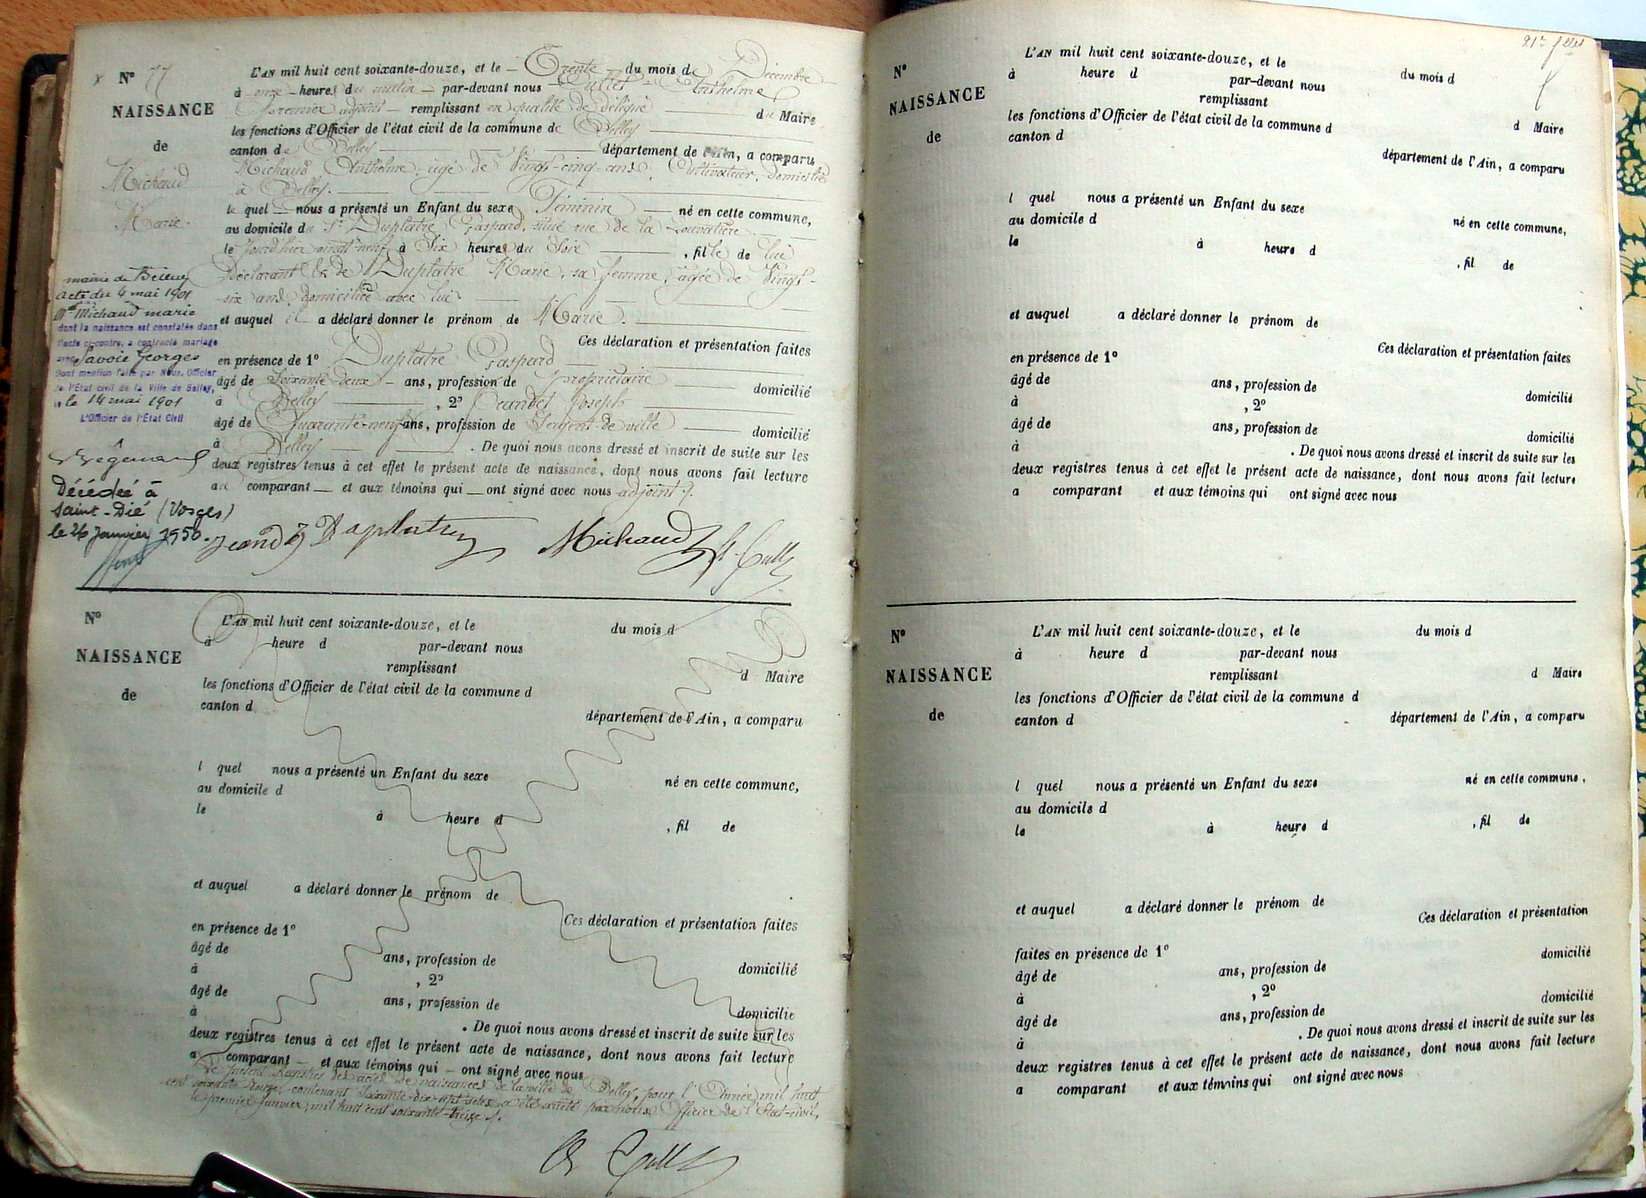 N° 77
NAISSANCE
de
Michaud
Marie
L'AN mil huit cent soixante-douze, et le Trente du mois de Décembre
à onze heures du matin par-devant nous Cullet Anthelme
Premier adjoint remplissant en qualité de délégué du Maire
les fonctions d'Officier de l'état civil de la commune de Belley
canton de Belley département de l'Ain, a comparu
Michaud Anthelme, agé de Vingt-cinq ans, Cultivateur, domicilié
à Belley.
le quel nous a présenté un Enfant du sexe Féminin né en cette commune,
au domicile du Sr Duplatre Gaspard, situé rue de la
le jourd'hier vingt-neuf à Six heures du Soir , fille de lui
Déclarant & de Duplatre Marie, sa femme, agée de Vingt-
six ans, domiciliée avec lui
et auquel il a déclaré donner le prénom de Marie.
Ces déclaration et présentation faites
en présence de 1° Duplatre Gaspard
âgé de Soixante deux ans, profession de propriétaire domicilié
à Belley , 2° Joseph
âgé de Quarante-neuf ans, profession de Sergent-de-ville domicilié
à Belley . De quoi nous avons dressé et inscrit de suite sur les
deux registres tenus à cet effet le présent acte de naissance, dont nous avons fait lecture
au comparant et aux témoins qui ont signé avec nous adjoint.
Duplatre Michaud
mairie de
acte du 4 mai 1901
Mlle Michaud marie
dont la naissance est constatée dans
l'acte ci-contre, a contracté mariage
avec Savoie Georges
Dont mention faite par Nous, Officier
de l'État civil de la Ville de Belley,
le 14 mai 1901
L'Officier de l'État Civil
Décédée à
Saint-Dié (Vosges)
le 26 Janvier 1950.
N°
NAISSANCE
de
L'AN mil huit cent soixante-douze, et le du mois d
à heure d par-devant nous
remplissant d Maire
les fonctions d'Officier de l'état civil de la commune d
canton d département de l'Ain, a comparu
l quel nous a présenté un Enfant du sexe né en cette commune,
au domicile d
le à heure d , fil de
et auquel a déclaré donner le prénom de
Ces déclaration et présentation faites
en présence de 1°
âgé de ans, profession de domicilié
à , 2°
âgé de ans, profession de domicilié
à . De quoi nous avons dressé et inscrit de suite sur les
deux registres tenus à cet effet le présent acte de naissance, dont nous avons fait lecture
a comparant et aux témoins qui ont signé avec nous
Le présent Registre des actes de naissances de la ville de Belley, pour l'Année mil huit
cent soixante douze, contenant soixante-dix-sept actes, a été arrêté par nous Officier de l'État-civil,
le premier Janvier, mil huit cent soixante-treize.
N°
NAISSANCE
de
L'AN mil huit cent soixante-douze, et le du mois d
à heure d par-devant nous
remplissant
les fonctions d'Officier de l'état civil de la commune d d Maire
canton d
département de l'Ain, a comparu
l quel nous a présenté un Enfant du sexe
au domicile d né en cette commune,
le à heure d , fil de
et auquel a déclaré donner le prénom de
Ces déclaration et présentation faites
en présence de 1°
âgé de ans, profession de domicilié
à , 2°
âgé de ans, profession de domicilié
à . De quoi nous avons dressé et inscrit de suite sur les
deux registres tenus à cet effet le présent acte de naissance, dont nous avons fait lecture
a comparant et aux témoins qui ont signé avec nous
N°
NAISSANCE
de
L'AN mil huit cent soixante-douze, et le du mois d
à heure d par-devant nous
remplissant d Maire
les fonctions d'Officier de l'état civil de la commune d
canton d département de l'Ain, a comparu
l quel nous a présenté un Enfant du sexe né en cette commune,
au domicile d
le à heure d , fil de
et auquel a déclaré donner le prénom de
Ces déclaration et présentation
faites en présence de 1° domicilié
âgé de ans, profession de
à , 2° domicilié
âgé de ans, profession de
à . De quoi nous avons dressé et inscrit de suite sur les
deux registres tenus à cet effet le présent acte de naissance, dont nous avons fait lecture
a comparant et aux témoins qui ont signé avec nous